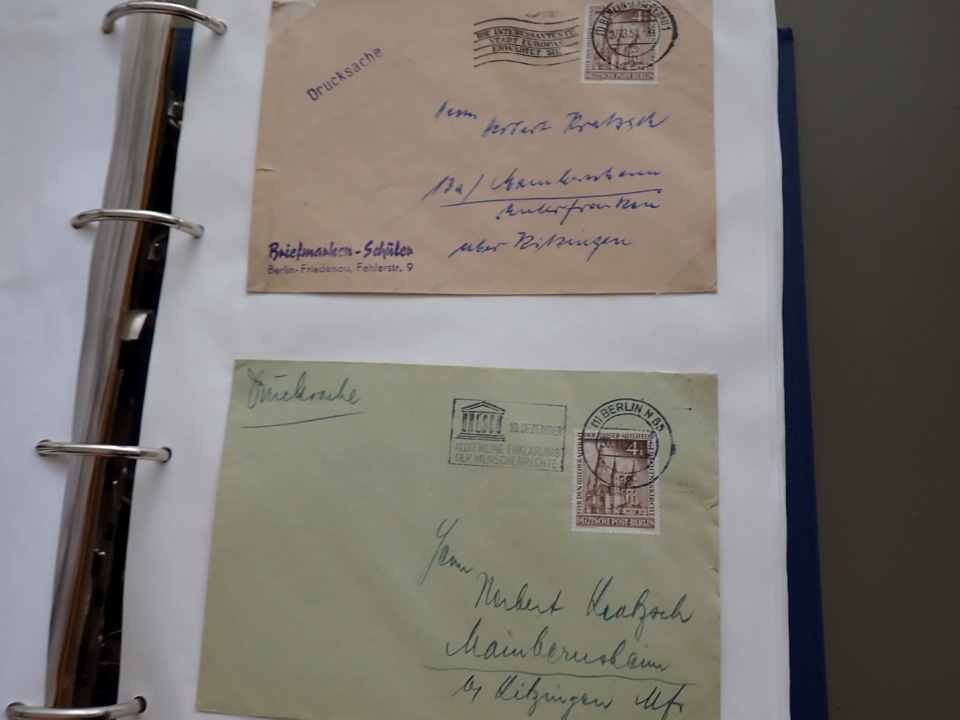 Drucksache
DIE INTERESSANTESTE
STADT EUROPAS
ERWARTET SIE
4
DEUTSCHE POST BERLIN
Herrn
Norbert Kratzsch
13a/ Mainbernheim
Unterfranken
über Kitzingen
Briefmarken-Schüler
Berlin-Friedenau, Fehlerstr. 9
Drucksache
UNESCO
10. DEZEMBER
ERKLÄRUNG
DER MENSCHENRECHTE
(1) BERLIN N 65
4
DEUTSCHE POST BERLIN
Herrn
Norbert Kratzsch
Mainbernheim
Kitzingen Mfr.